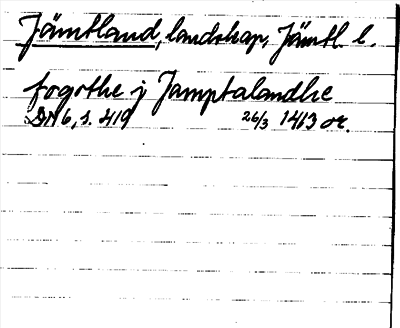 Jämtland, landskap, Jämtl. l.
fogothe j Jamptalandhe
DN 6, s. 419 26/3 1413 or.